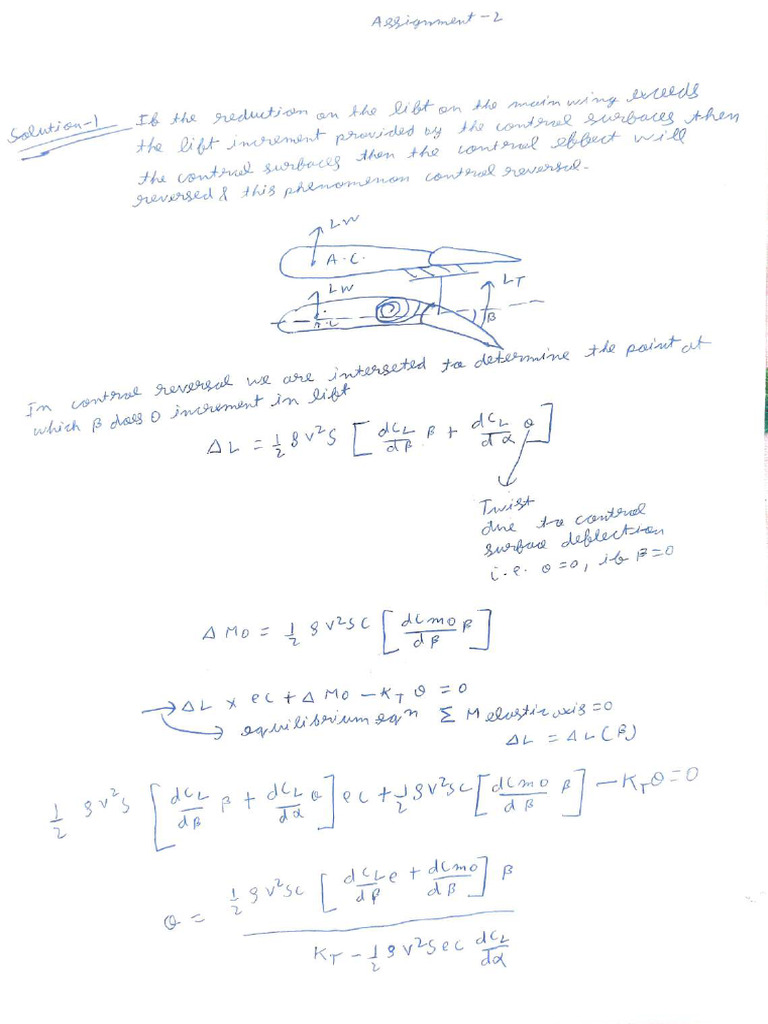 Assignment-2
Solution-1 If the reduction on the lift on the main wing exceeds
the lift increment provided by the control surfaces then
the control surfaces then the control effect will
reversed & this phenomenon control reversal.
LW
A.C.
LW
LT
A.C
β
In control reversal we are interseted to determine the point at
which β does 0 increment in lift
ΔL = 1/2 ρV²S [ dCL/dβ β + dCL/dα θ ]
Twist
due to control
surface deflection
i.e. θ=0, if β=0
ΔM0 = 1/2 ρV²SC [ dCm0/dβ β ]
→ ΔL × eC + ΔM0 − KT θ = 0
→ equilibrium eqⁿ Σ M elastic axis = 0
ΔL = ΔL(β)
1/2 ρV²S [ dCL/dβ β + dCL/dα θ ] eC + 1/2 ρV²SC [ dCm0/dβ β ] − KTθ = 0
θ = 1/2 ρV²SC [ dCL/dβ e + dCm0/dβ ] β
KT − 1/2 ρV²SeC dCL/dα